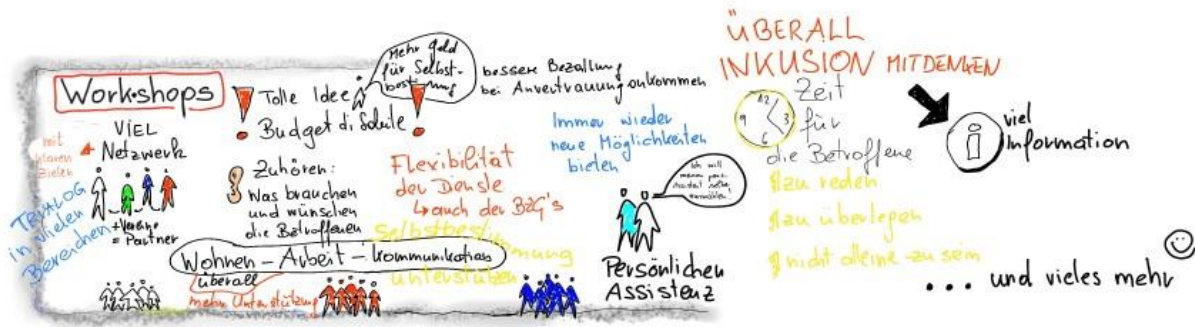 Workshops
mit
klaren
zielen
VIEL
Netzwerk
TRIALOG
in vielen
Bereichen
+ Vereine
= Partner
Tolle Idee
Budget di Salute
Mehr Geld
für Selbst-
bestimmung
bessere Bezallung
bei Anvertrauung onkommen
Zuhören:
Was brauchen
und wünschen
die Betroffenen
Flexibilität
der Dienste
↳ auch der BZG's
Immer wieder
neue Möglichkeiten
bieten
Selbstbestimmung
unterstützen
Wohnen - Arbeit - Kommunikation
überall
mehr Unterstützung
Ich will
meinen
selbst
Persönlichen
Assistenz
ÜBERALL
INKUSION MITDENKEN
12
9 3
6
Zeit
für
die Betroffene
zu reden
zu überlegen
nicht alleine zu sein
i viel
Information
... und vieles mehr